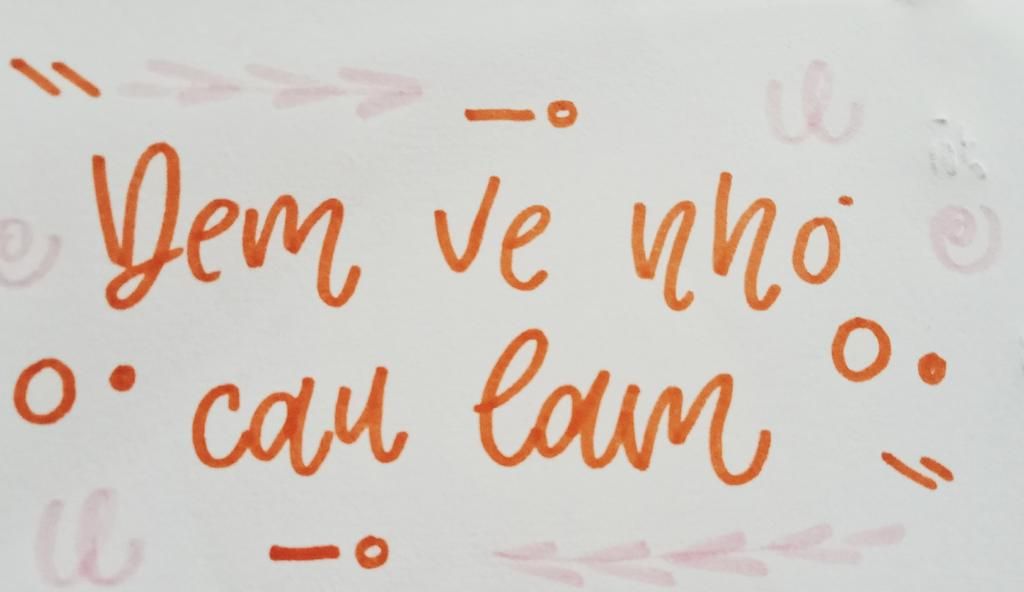 Dem ve nhớ
cau lam